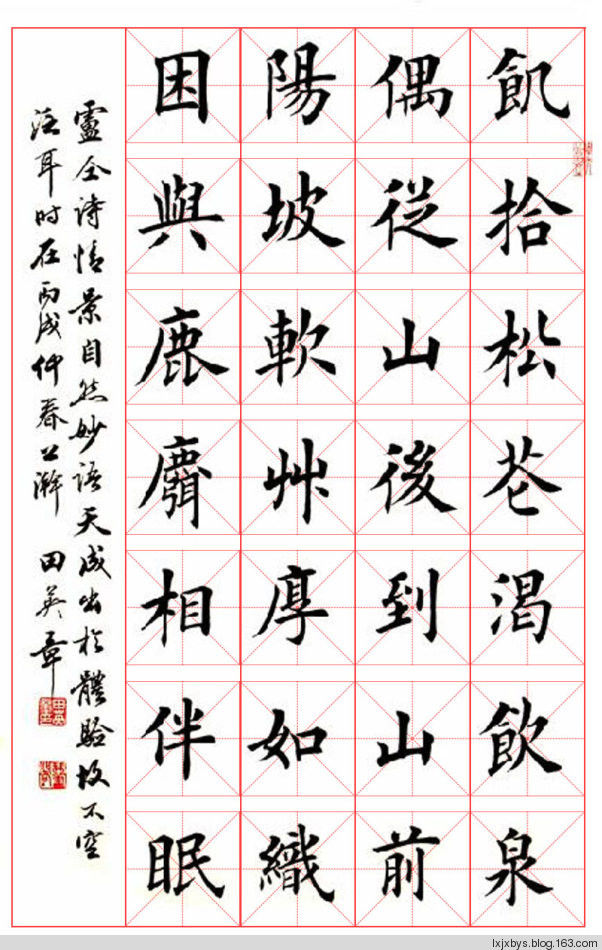 飢拾松花渴飲泉
偶從山後到山前
陽坡軟艸厚如織
困與鹿麛相伴眠
盧仝詩情景自然妙語天成出於體驗故不空
泛耳时在丙戌仲春 田英章
lxjxbys.blog.163.com